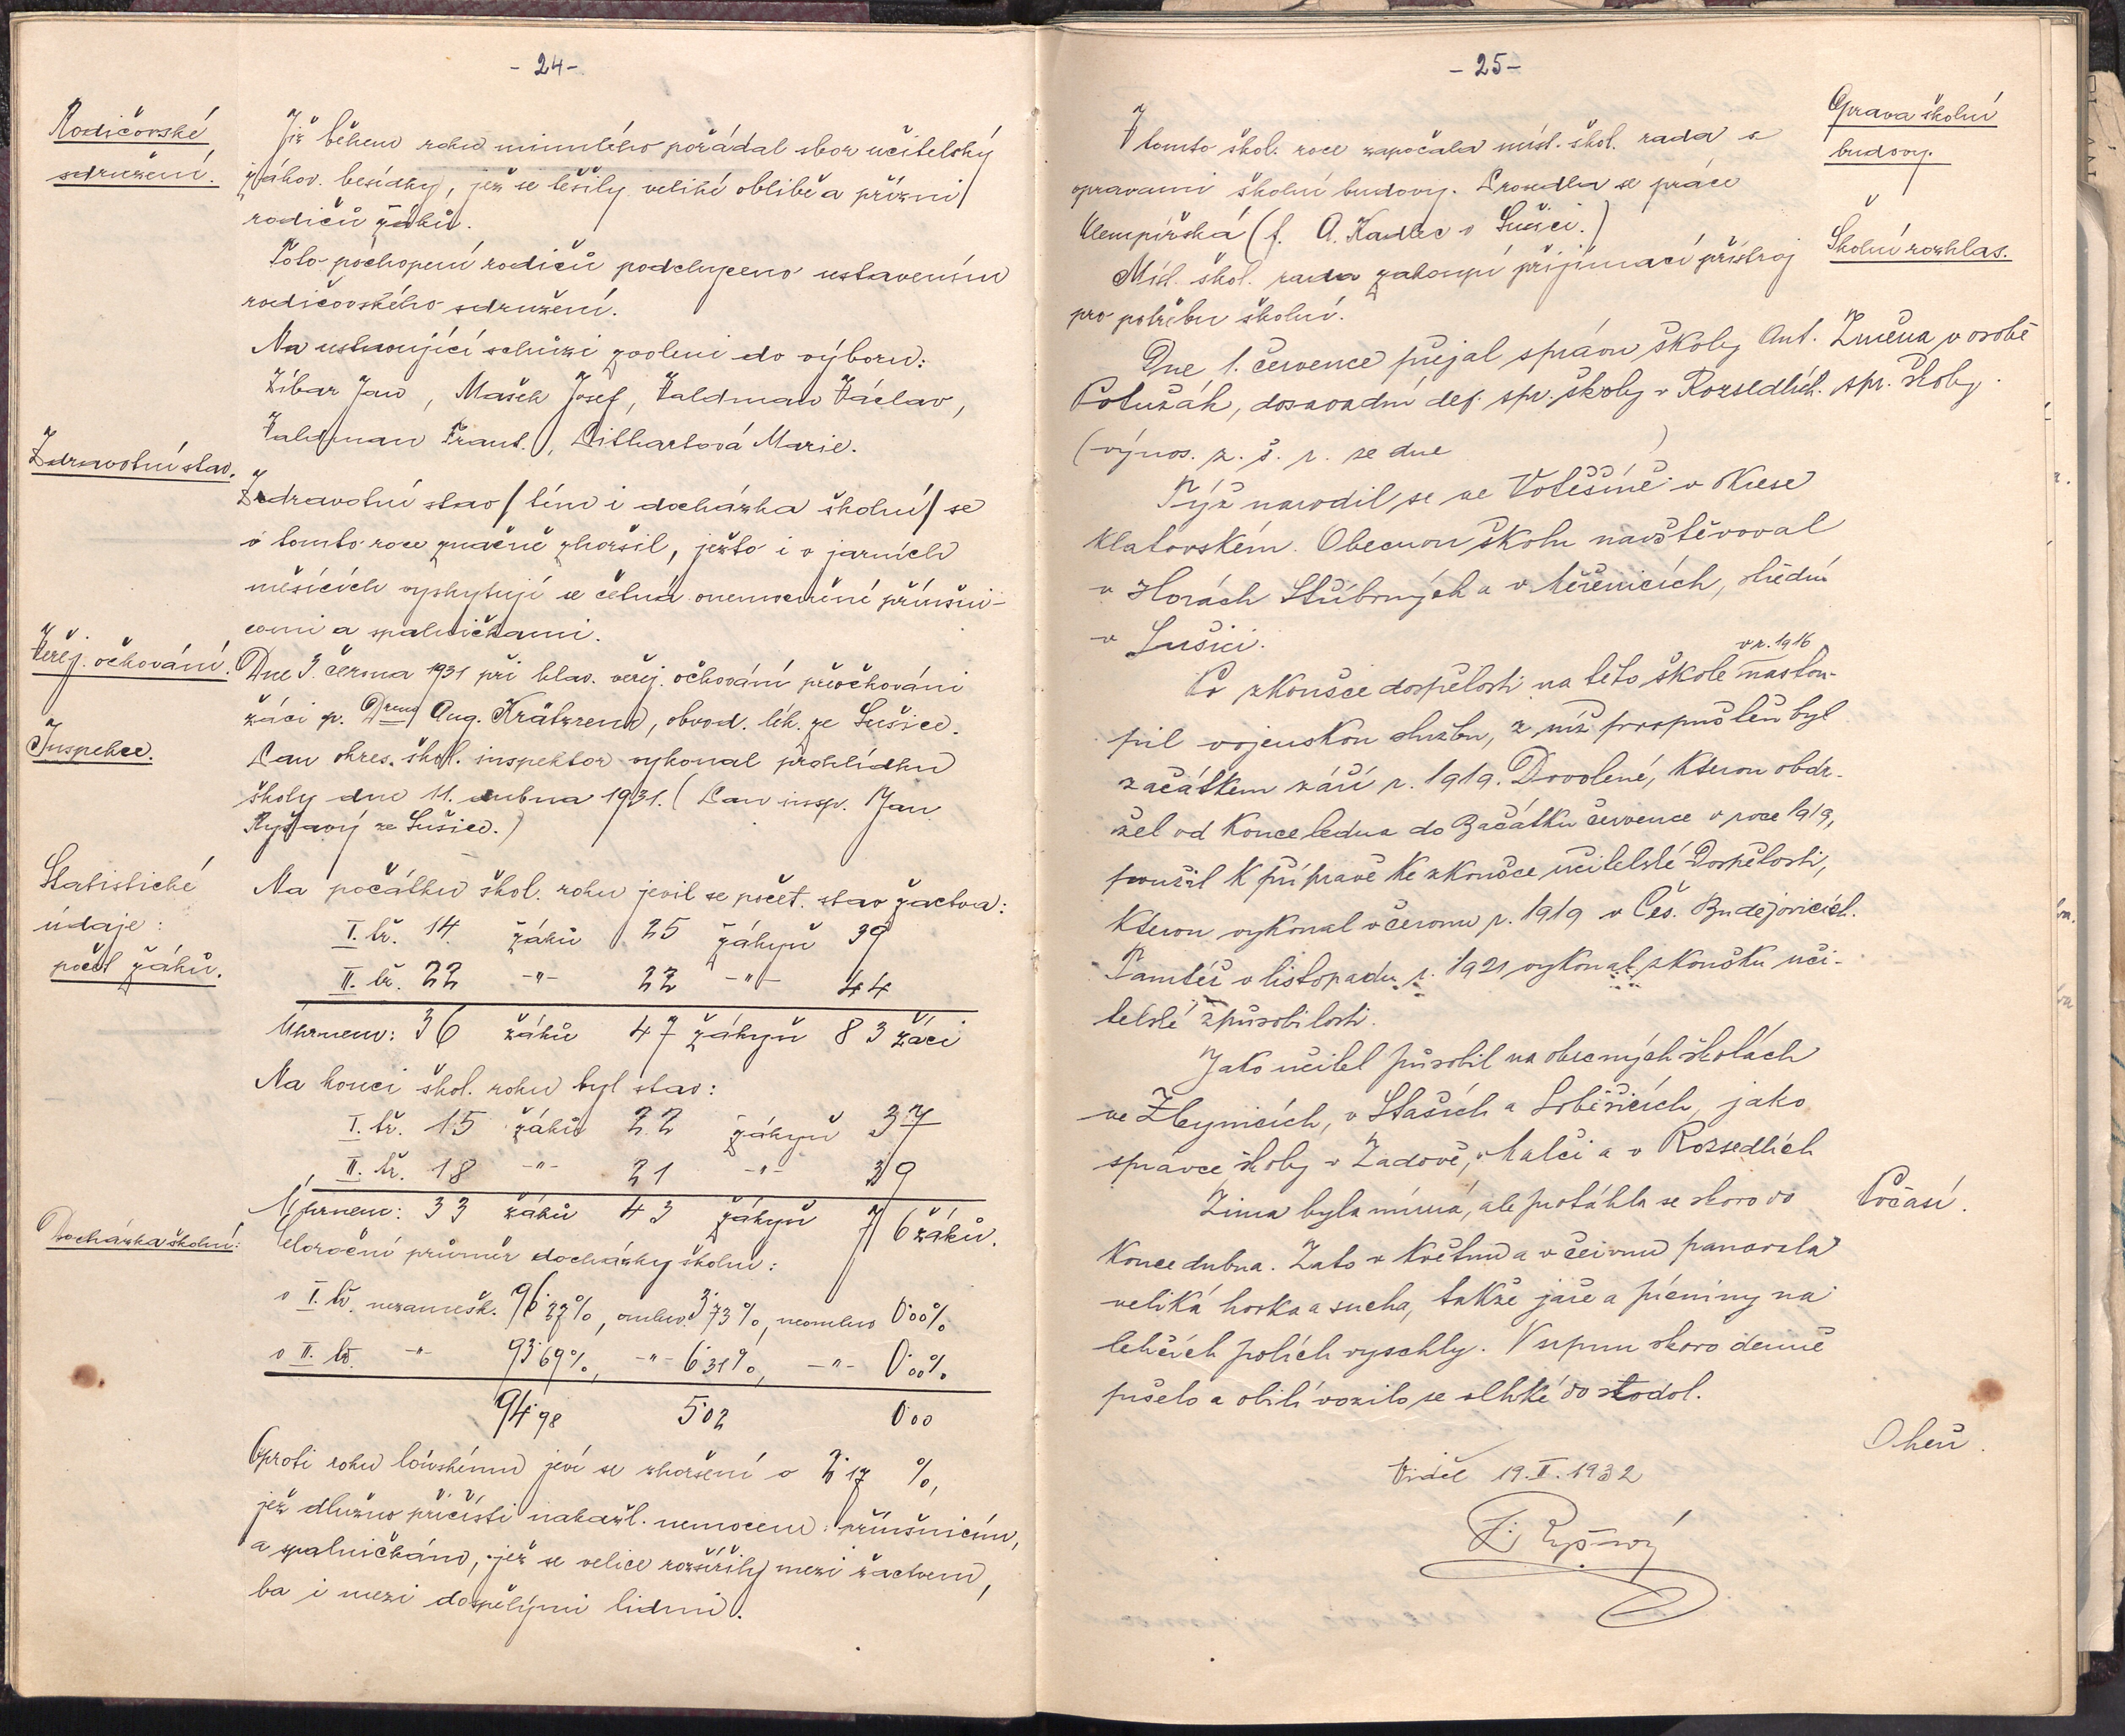 - 24 -
Rodičovské
sdružení.
Již během roku minulého pořádal sbor učitelský
žákov. besídky, jež se těšily veliké oblibě a přízni
rodičů žáků.
Toto pochopení rodičů podchyceno ustavením
rodičovského sdružení.
Na ustavující schůzi zvoleni do výboru:
Žíbar Jan, Mašek Josef, Valdman Václav,
Valdman Frant., Lithartová Marie.
Zdravotní stav.
Zdravotní stav / tím i docházka školní / se
v tomto roce značně zhoršil, ježto i v jarních
měsících vyskytují se četná onemocnění příušni-
cemi a spalničkami.
Veřej. očkování.
Dne 3. června 1931 při hlav. veřej. očkování přeočkováni
žáci p. Drem Aug. Krätzrem, obvod. lék. ze Sušice.
Inspekce.
Pan okres. škol. inspektor vykonal prohlídku
školy dne 11. dubna 1931. (Pan insp. Jan
Ryšavý ze Sušice.)
Statistické
údaje:
počet žáků.
Na počátku škol. roku jevil se počet. stav žactva:
I. tř. 14 žáků 25 žákyň 39
II. tř. 22 -"- 22 -"- 44
Úhrnem: 36 žáků 47 žákyň 83 žáci
Na konci škol. roku byl stav:
I. tř. 15 žáků 22 žákyň 37
II. tř. 18 -"- 21 -"- 39
Úhrnem: 33 žáků 43 žákyň 76 žáků.
Docházka školní:
Celoroční průměr docházky školní:
v I. tř. nezamešk. 96·27%, omluv. 3·73%, neomluv 0·00%
v II. tř. -"- 93·69%, -"- 6·31%, -"- 0·00%
94·98 5·02 0·00
Oproti roku loňskému jeví se zhoršení o 2·17 %,
jež dlužno přičísti nakažl. nemocem: příušnicím,
a spalničkám, jež se velice rozšířily mezi žactvem,
ba i mezi dospělými lidmi.
- 25 -
Oprava školní
budovy.
V tomto škol. roce započala míst. škol. rada s
opravami školní budovy. Provedla se práce
klempířská (f. A. Kadlec v Sušici.)
Školní rozhlas.
Míst. škol. rada zakoupí přijímací přístroj
pro potřebu školní.
Změna v osobě
spr. školy.
Dne 1. července přejal správu školy Ant.
Potužák, dosavadní def. spr. školy v Rozsedlích.
(výnos. z. š. r. ze dne )
Týž narodil se ve Votěšíně v okrese
klatovském. Obecnou školu navštěvoval
v Horách Stříbrných a v Něčemicích, střední
v Sušici.
v r. 1916
Po zkoušce dospělosti na této škole nastou-
pil vojenskou službu, z níž propuštěn byl
začátkem září r. 1919. Dovolené, kterou obdr-
žel od konce ledna do začátku července v roce 1919,
použil k přípravě ke zkoušce učitelské dospělosti,
kterou vykonal v červnu r. 1919 v Čes. Budějovicích.
Tamtéž v listopadu r. 1921 vykonal zkoušku uči-
telské způsobilosti.
Jako učitel působil na obecných školách
ve Zbynicích, v Stašich a Srběticích, jako
správce školy v Zadově, v Malči a v Rozsedlích
Počasí.
Zima byla mírná, ale protáhla se skoro do
konce dubna. Zato v květnu a v červnu panovala
veliká horka a sucha, takže jaře a pícniny na
lehčích polích vyschly. V srpnu skoro denně
pršelo a obilí vozilo se vlhké do stodol.
Oheň.
Viděl 19. II. 1932
J. Ryšavý